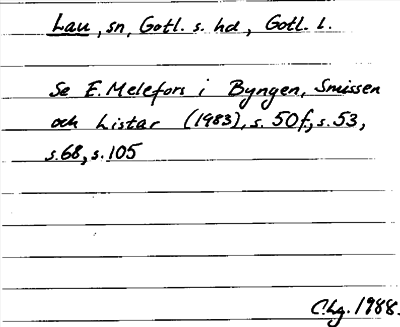 Lau, sn, Gotl. s. hd, Gotl. l.
Se E. Melefors i Byngen, Smissen
och Listar (1983), s. 50f, s. 53,
s. 68, s. 105
C.Lg. 1988.